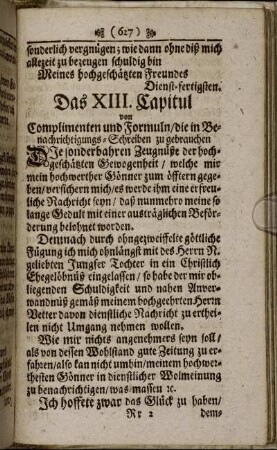 (627)
sonderlich vergnügen; wie dann ohne diß mich
allezeit zu bezeugen schuldig bin
Meines hochgeschätzten Freundes
Dienst-fertigsten.
Das XIII. Capitul
von
Complimenten und Formuln/ die in Be-
nachrichtigungs-Schreiben zu gebrauchen
Die sonderbahren Zeugnüße der hoch-
geschätzten Gewogenheit / welche mir
mein hochwerther Gönner zum öfftern gege-
ben/ versichern mich/ es werde ihm eine erfreu-
liche Nachricht seyn / daß nunmehro meine so
lange Gedult mit einer austräglichen Beför-
derung belohnet worden.
Demnach durch ohngezweiffelte göttliche
Fügung ich mich ohnlängst mit des Herrn N.
geliebten Jungfer Tochter in ein Christlich
Ehegelöbnüß eingelassen / so habe der mir ob-
liegenden Schuldigkeit und nahen Anver-
wandnüß gemäß meinem hochgeehrten Herrn
Vetter davon dienstliche Nachricht zu erthei-
len nicht Umgang nehmen wollen.
Wie mir nichts angenehmers seyn soll/
als von dessen Wohlstand gute Zeitung zu er-
fahren/ also kan nicht umhin/ meinem hochwer-
thesten Gönner in dienstlicher Wolmeinung
zu benachrichtigen/ was massen ꝛc.
Ich hoffete zwar das Glück zu haben/
Rr 2 dem-